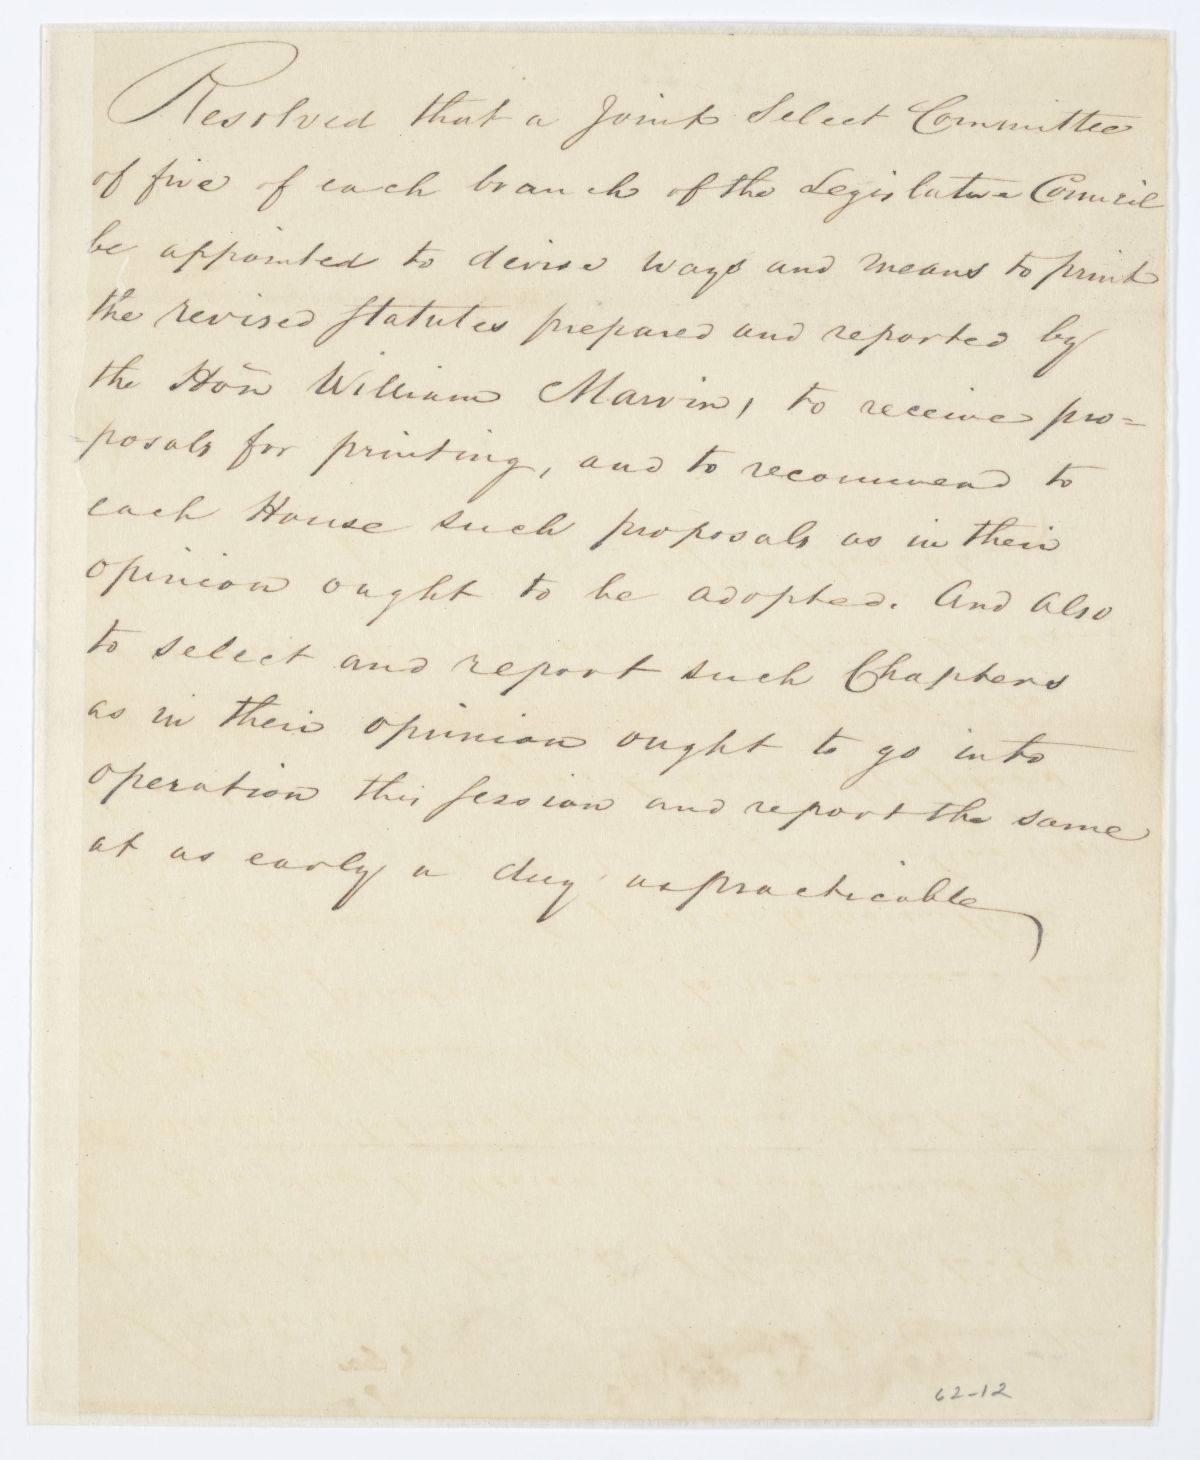 Resolved that a Joint Select Committee
of five of each branch of the Legislative Council
be appointed to devise ways and means to print
the revised Statutes prepared and reported by
the Hon William Marvin, to receive pro=
=posals for printing, and to recommend to
each House such proposals as in their
opinion ought to be adopted. And also
to select and report such Chapters
as in their opinion ought to go into
operation this session and report the same
at as early a day as practicable
62-12